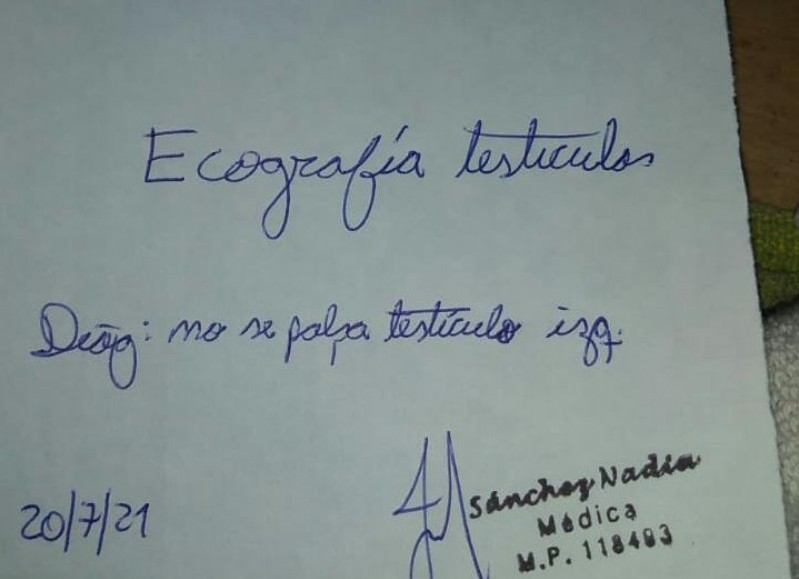 Ecografía testiculos
Diag: no se palpa testículo izq.
20/7/21
Sánchez Nadia
Médica
M.P. 118493